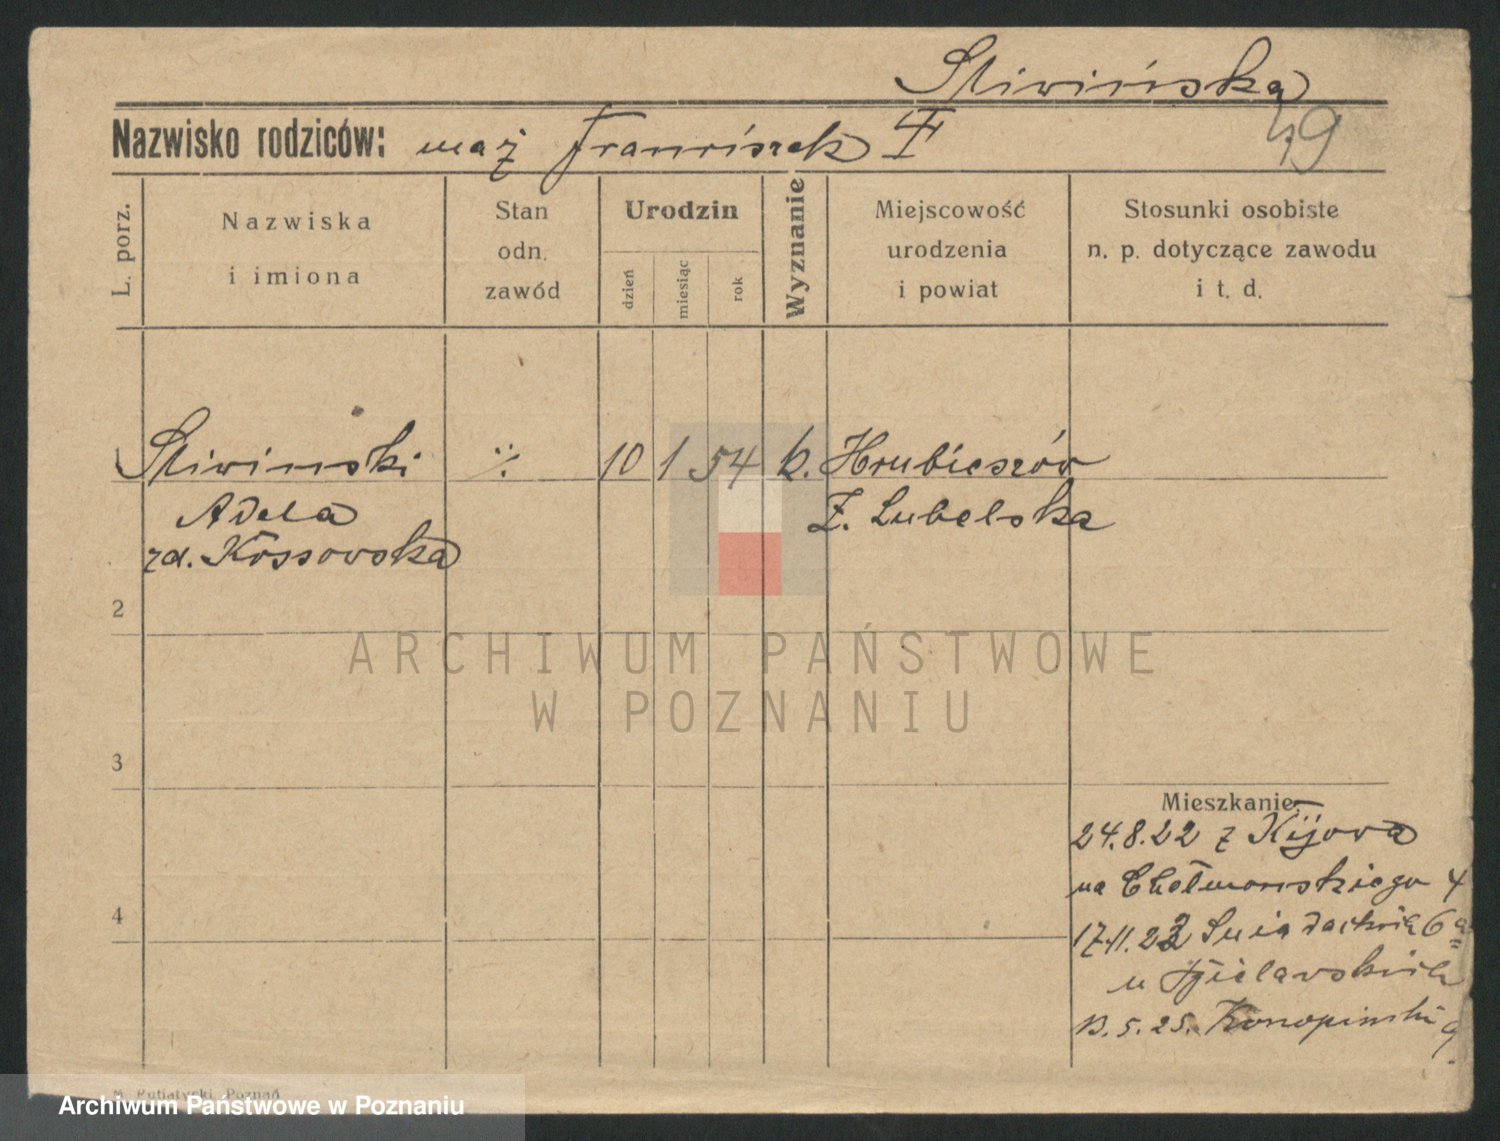 Śliwińska
Nazwisko rodziców: mąż Franciszek
49
L. porz.
Nazwiska
i imiona
Stan
odn.
zawód
Urodzin
dzień
miesiąc
rok
Wyznanie
Miejscowość
urodzenia
i powiat
Stosunki osobiste
n. p. dotyczące zawodu
i t. d.
Śliwiński ·/· 10 1 54 k. Hrubieszów
Adela Z. Lubelska
zd. Kossowska
2
3
4
Mieszkanie
24.8.22 z Kijowa
na Chełmońskiego 4
17.11.22 Śniadeckich 6a
u
13.5.25. 9
ARCHIWUM PAŃSTWOWE
W POZNANIU
Poznań
Archiwum Państwowe w Poznaniu